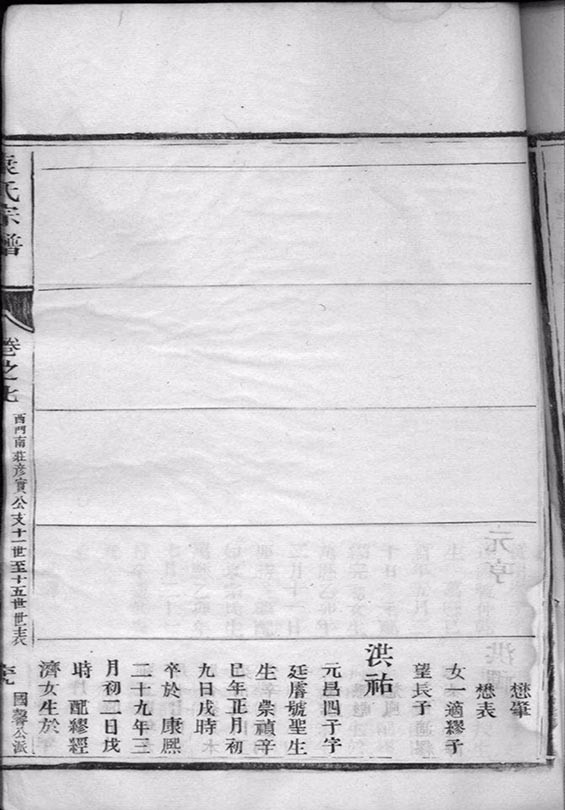 懋肇
懋表
女一適繆子
望長子
洪祐
元昌四子字
廷膺號聖生
生崇禎辛
巳年正月初
九日戌時
卒於康熙
三十九年三
月初二日戌
時 配繆經
濟女生於
袁氏宗譜
卷之七
西門南莊彥實公支十一世至十五世世表
國馨公派